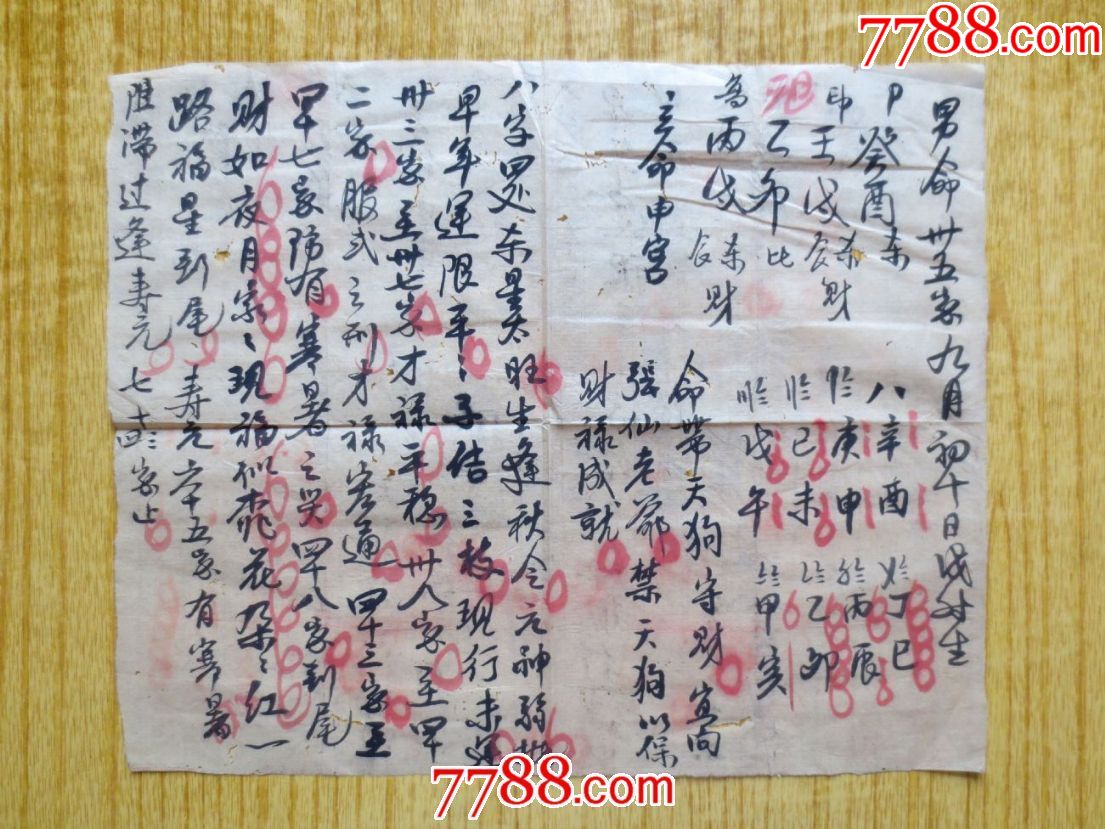 7788.com
男命卅五岁九月初十日戌时生
卩癸酉杀
印壬戌杀财
元旦乙卯比
丙戌杀财
命申宫
八辛酉
庚申
己未
戊午
丁巳
丙辰
乙卯
甲亥
命带天狗守财宜向
张仙老爷禁天狗以保
财禄成就
八字四处杀星太旺生逢秋令元神弱
早年运限平平子结三枝现行未运
卅三岁至卅七岁才禄平稳卅八岁至四
二岁服式之刑才禄宏通四十三岁至
四七岁防有寒暑之哭四八岁到尾
财如夜月家家现福似桃花朵朵红一
路福星到尾寿元六十五岁有寒暑
阻滞过逢寿元七十四岁止
7788.com